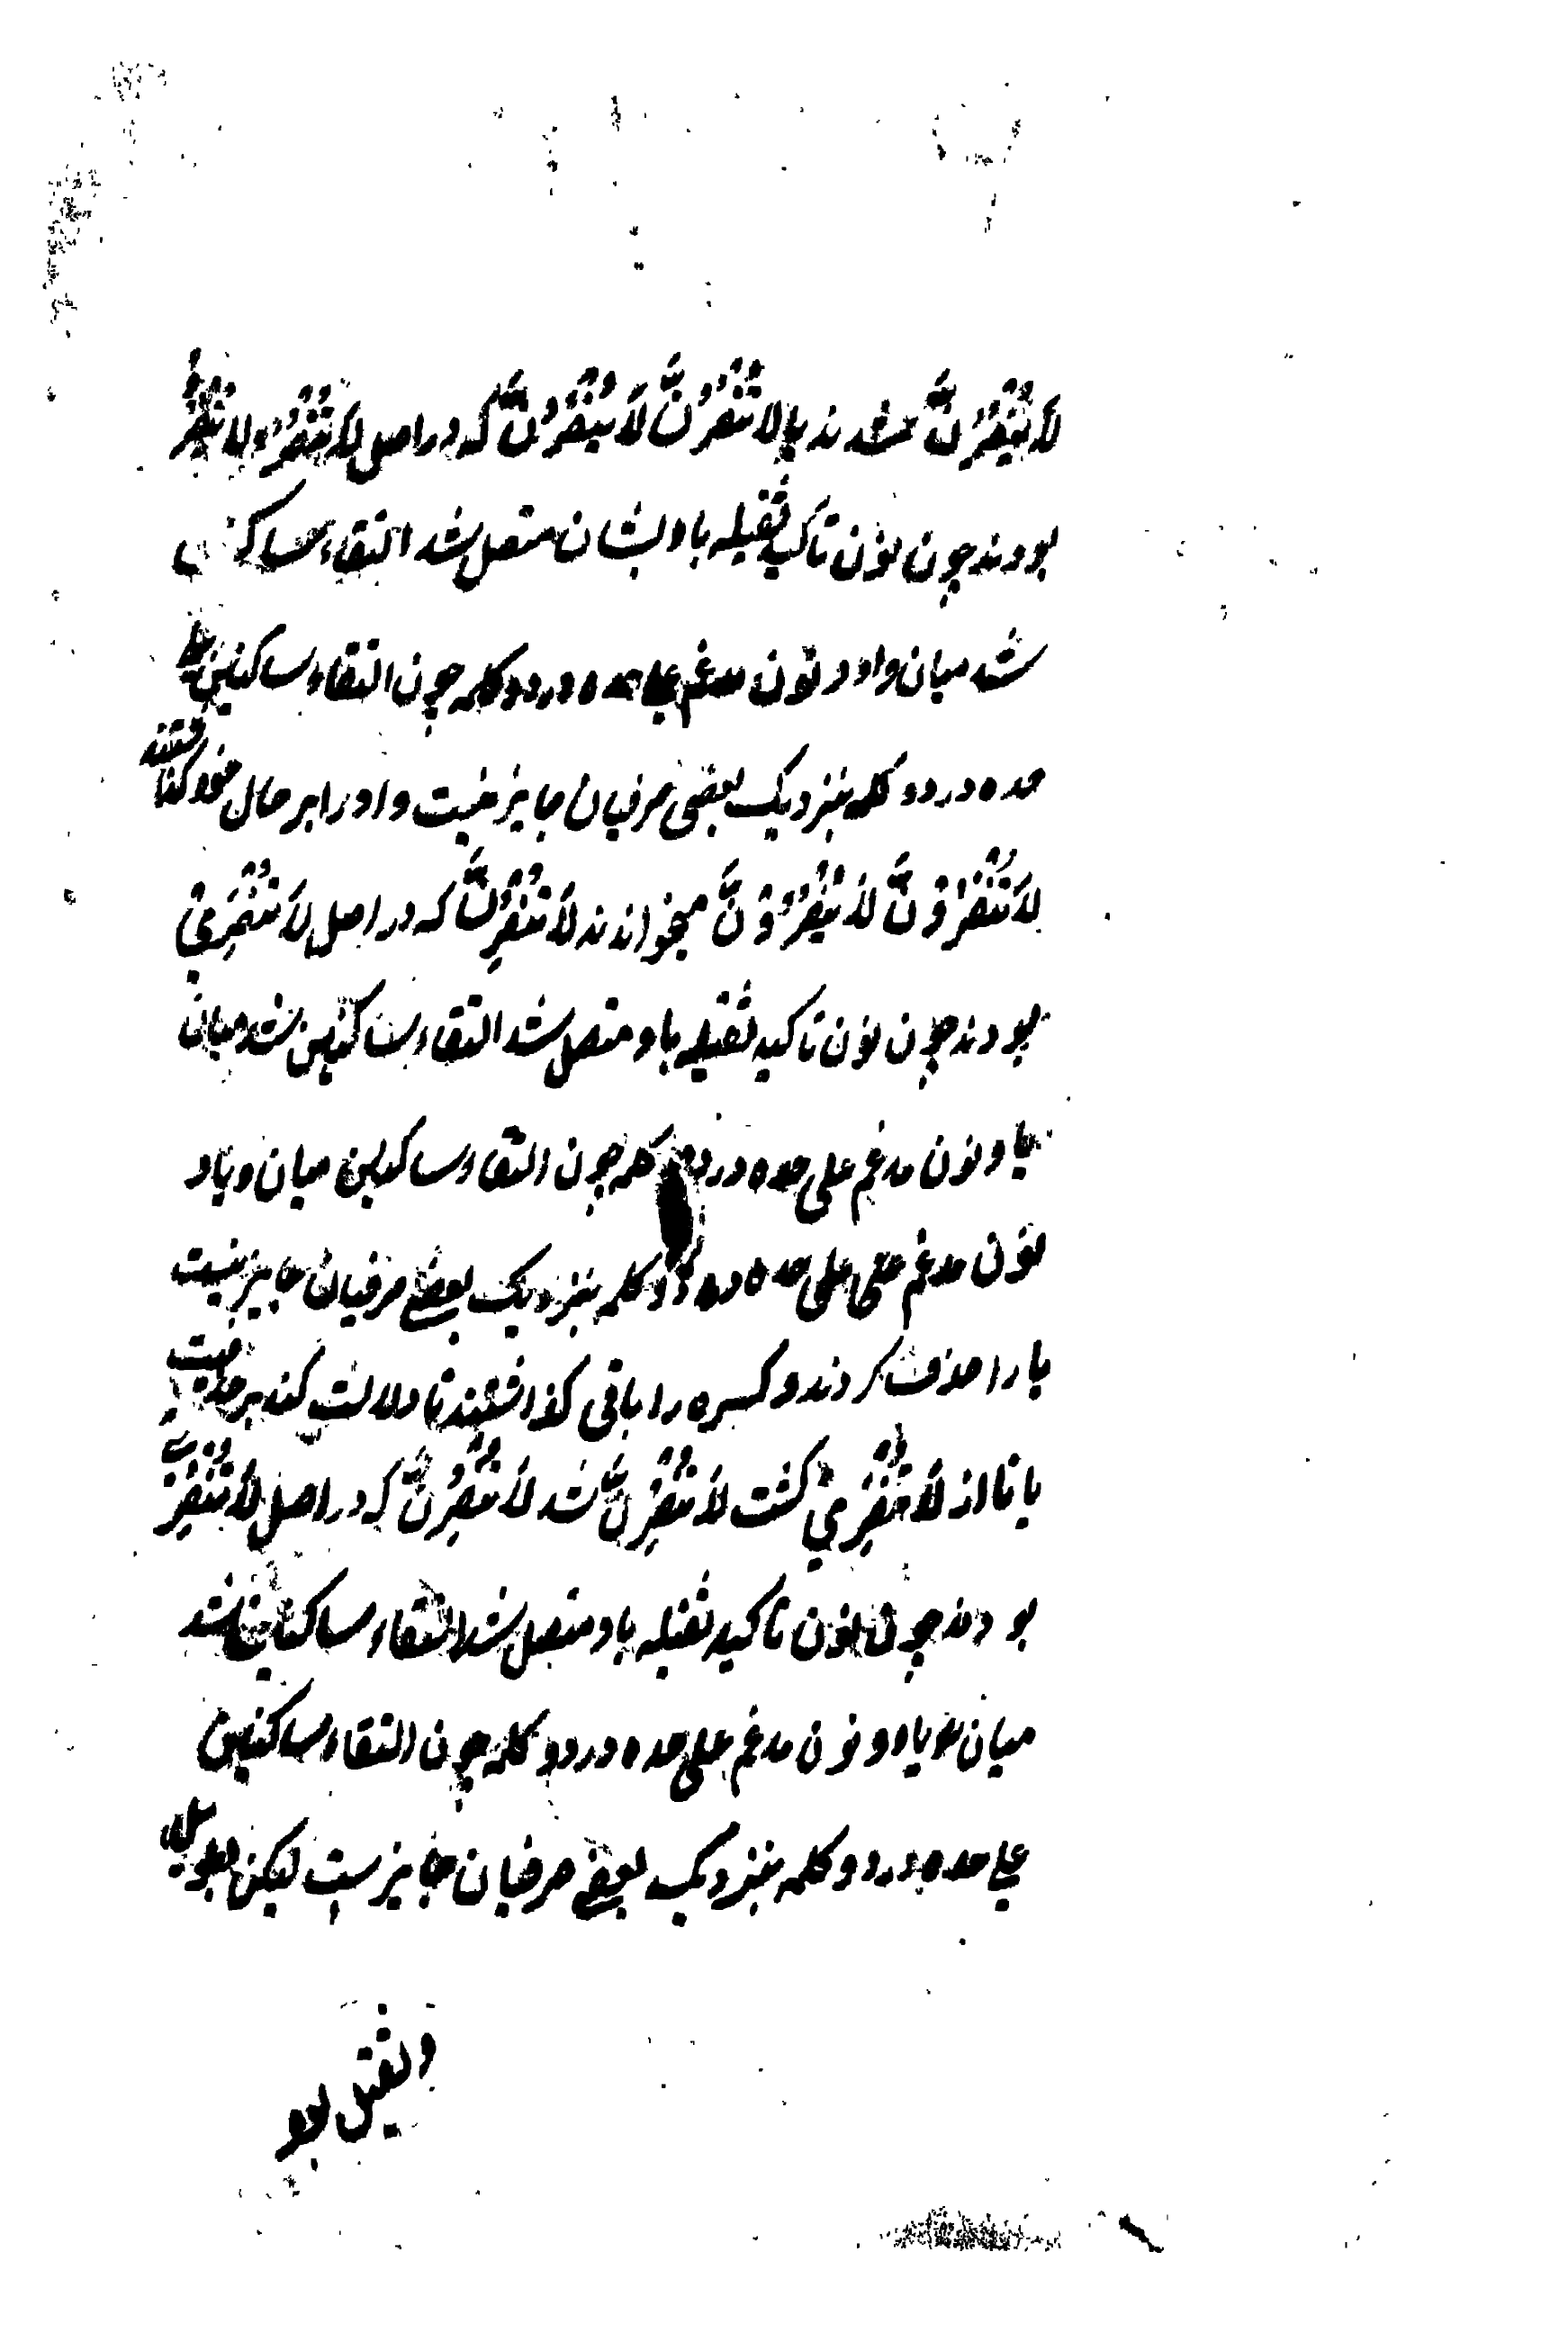 لَا يَنْفُرُنَّ شدند یا لا تَنْفُرُنَّ لَا يَنْفُرُنَّ که در اصل لَا تَنْفُرُوا لَا يَنْفُرُوا
بودند چون نون تاکید ثقیله باوایشان متصل شد التقاء ساکنین
شد میان واو و نون مدغم علی حده در دو کلمه چون التقاء ساکنین علی
حده در دو کلمه بنزدیک بعضی صرفیان جایز نیست واو را بر حال خود گذاشتند
لَا تَنْفُرُوْنَّ لَا يَنْفُرُوْنَّ میخوانند لَا تَنْفُرِنَّ که در اصل لَا تَنْفُرِيْ
بودند چون نون تاکید ثقیله باو متصل شد التقاء ساکنین شد میان
یا و نون مدغم علی حده در دو کلمه چون التقاء ساکنین میان و یا و
نون مدغم علی علی حده در دو کلمه بنزدیک بعضی صرفیان جایز نیست
یا را حذف کردند و کسره را باقی گذاشتند تا دلالت کند بر حذفیت
یا تا از لَا تَنْفُرِيْ گشت لَا تَنْفُرِنَّ شد لَا تَنْفُرِنَّ که در اصل لَا تَنْفُرِيْ
بودند چون نون تاکید ثقیله باو متصل شد التقاء ساکنین شد
میان یا و نون مدغم علی حده در دو کلمه چون التقاء ساکنین
علی حده در دو کلمه بنزدیک بعضی صرفیان جایزست لیکن طویل
و ثقیل بو